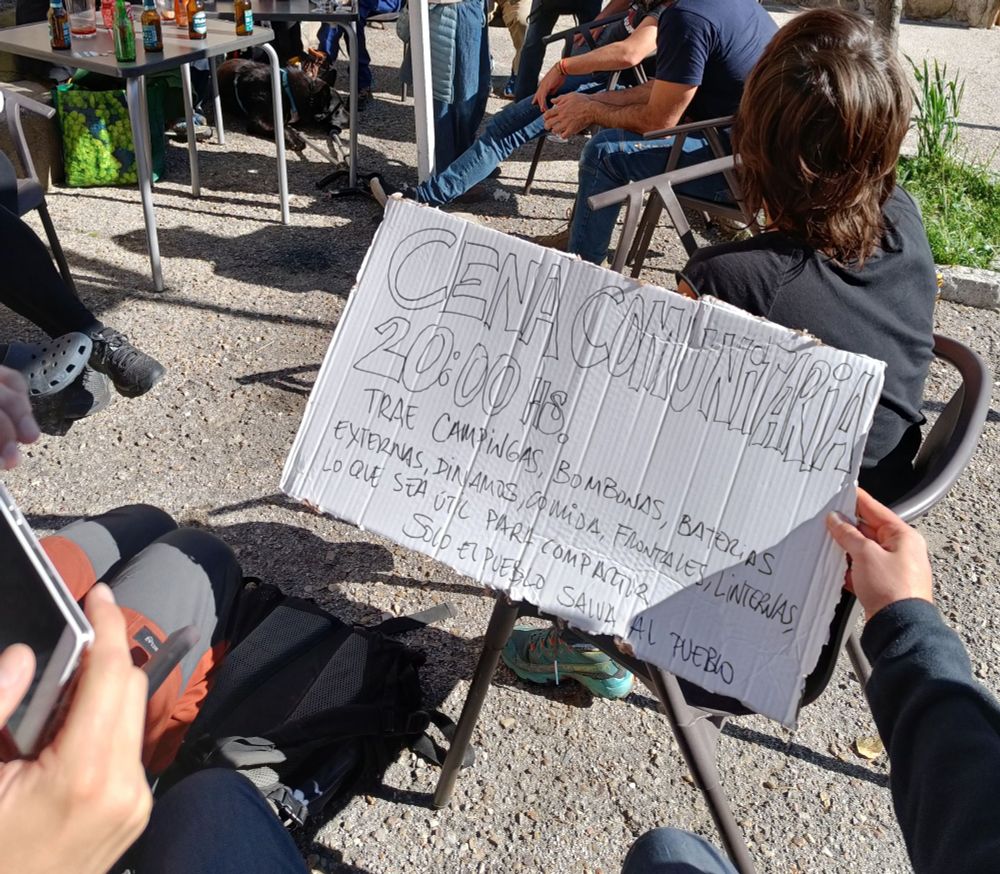 CENA COMUNITARIA
20:00 HS.
TRAE CAMPINGAS, BOMBONAS, BATERIAS
EXTERNAS, DINAMOS, COMIDA, FRONTALES, LINTERNAS,
LO QUE SEA ÚTIL PARA COMPARTIR
SOLO EL PUEBLO SALVA AL PUEBLO